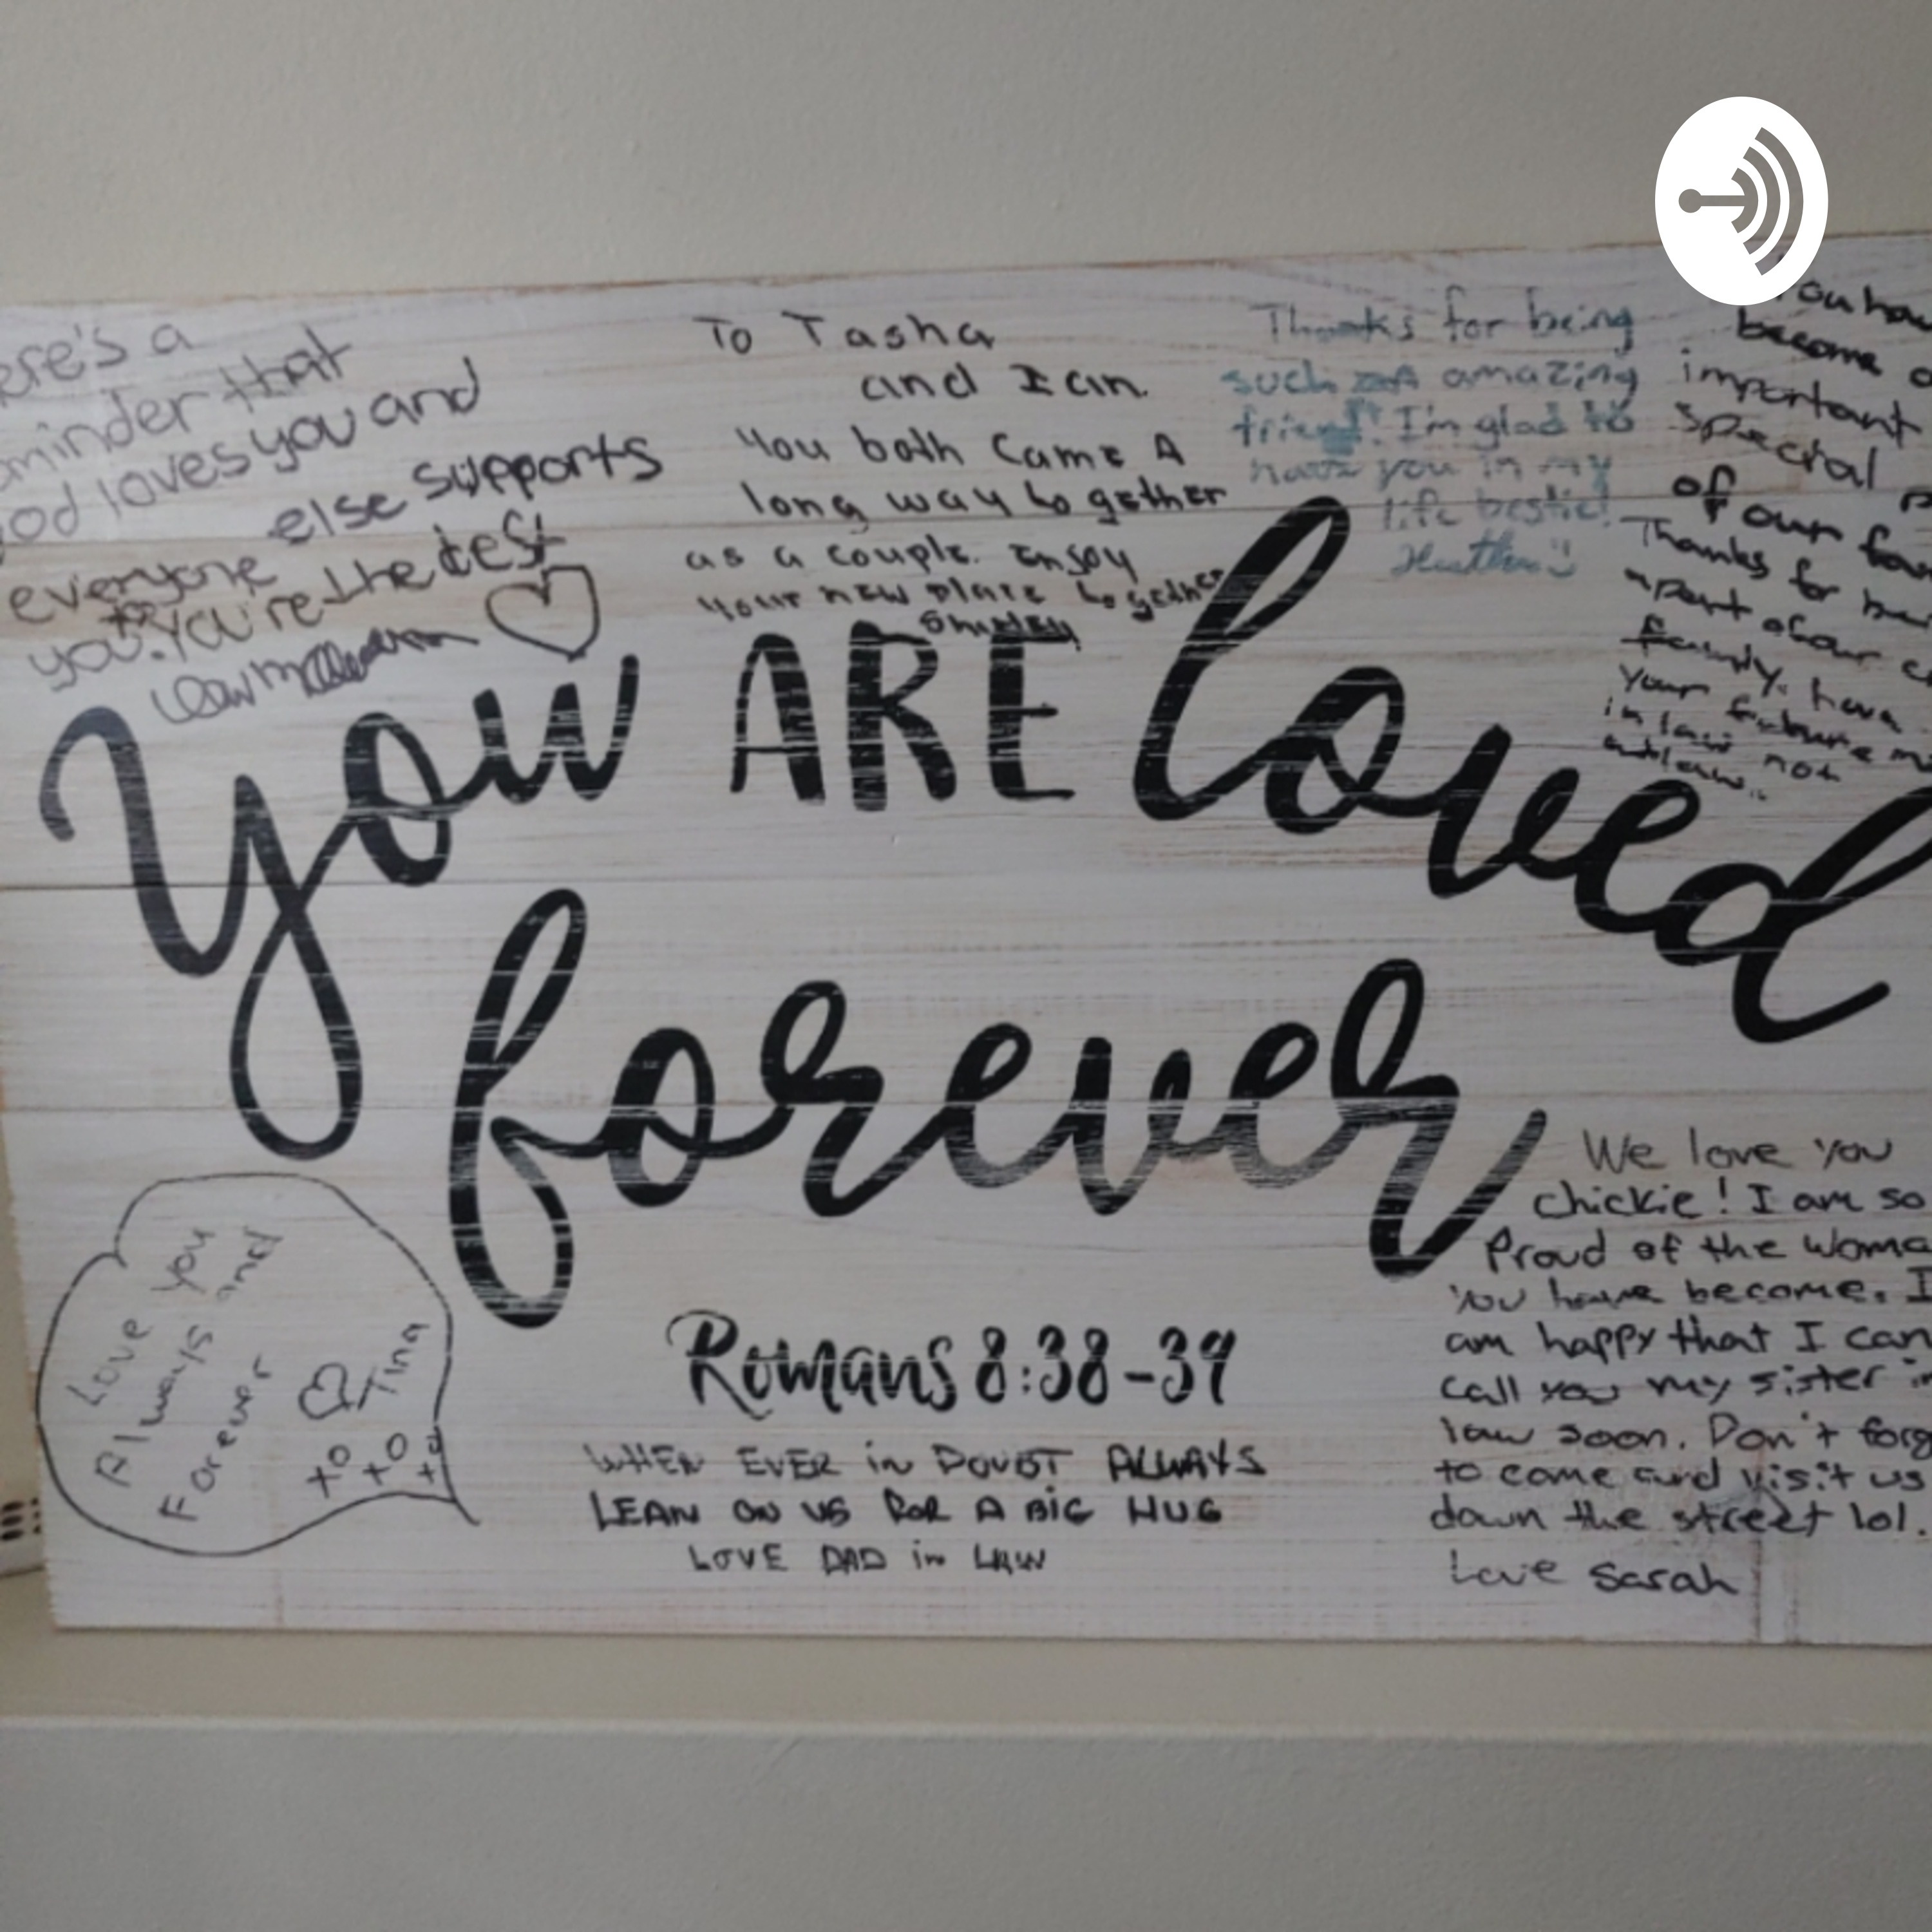 ere's a
minder that
od loves you and
everyone else supports
you. You're the best
To Tasha
and Ian.
You both Came A
long way together
as a couple. Enjoy
your new place together
Shirley
Thanks for being
such an amazing
friend! I'm glad to
have you in my
life bestie!
Heather
You hav
become a
important
special p
of our fam
Thanks for
apart of our
family.
your future
in law not
outlaw..
You ARE loved
forever
Romans 8:38-39
Love you
Always and
Forever
Tina
xo
xo
xo
WHEN EVER in DOUBT ALWAYS
LEAN ON US FOR A BIG HUG
LOVE DAD in LAW
We love you
chickie! I am so
Proud of the woma
you have become. I
am happy that I can
call you my sister in
law soon. Don't forg
to come and visit us
down the street lol.
Love Sarah